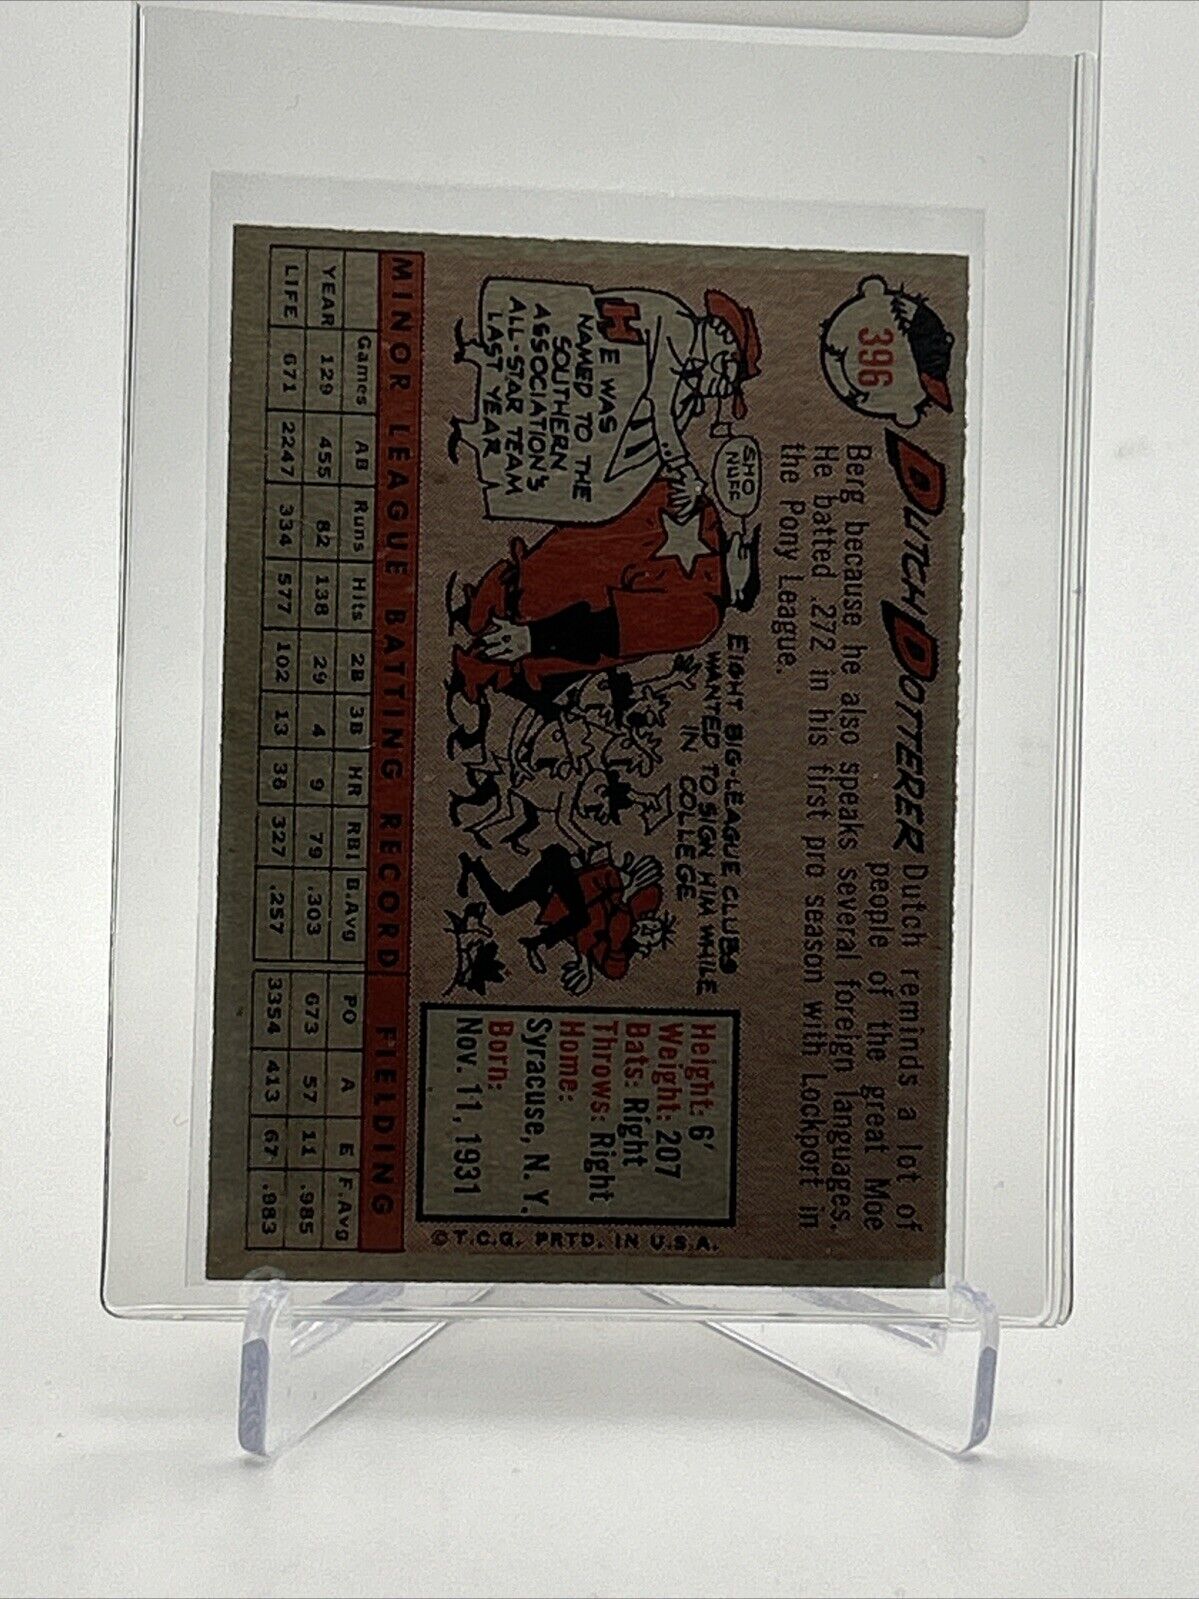 396
DUTCH DOTTERER
Dutch reminds a lot of
people of the great Moe
Berg because he also speaks several foreign languages.
He batted .272 in his first pro season with Lockport in
the Pony League.
SHO
NUFF
HE WAS
NAMED TO THE
SOUTHERN
ASSOCIATION'S
ALL-STAR TEAM
LAST YEAR
EIGHT BIG-LEAGUE CLUBS
WANTED TO SIGN HIM WHILE
IN COLLEGE
Height: 6'
Weight: 207
Bats: Right
Throws: Right
Home:
Syracuse, N.Y.
Born:
Nov. 11, 1931
© T.C.G. PRTD. IN U.S.A.
MINOR LEAGUE BATTING RECORD FIELDING
Games AB Runs Hits 2B 3B HR RBI B.Avg PO A E F.Avg
YEAR 129 455 82 138 29 4 9 79 .303 673 57 11 .985
LIFE 671 2247 334 577 102 13 38 327 .257 3354 413 67 .983